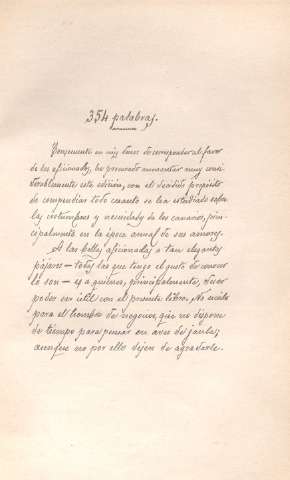 354 palabras.
Consecuente en mis deseos de corresponder al favor
de los aficionados, he procurado aumentar muy consi-
derablemente esta edición, con el decidido propósito
de compendiar todo cuanto se ha estudiado sobre
las costumbres y necesidades de los canarios, prin-
cipalmente en la época anual de sus amores.
A las bellas aficionadas a tan elegantes
pájaros — todas las que tengo el gusto de conocer
lo son — es a quienes, principalmente, creo
poder ser útil con el presente libro. No
para el hombre de negocios, que no dispone
de tiempo para pensar en aves de jaula;
aunque no por ello dejen de agradarle.